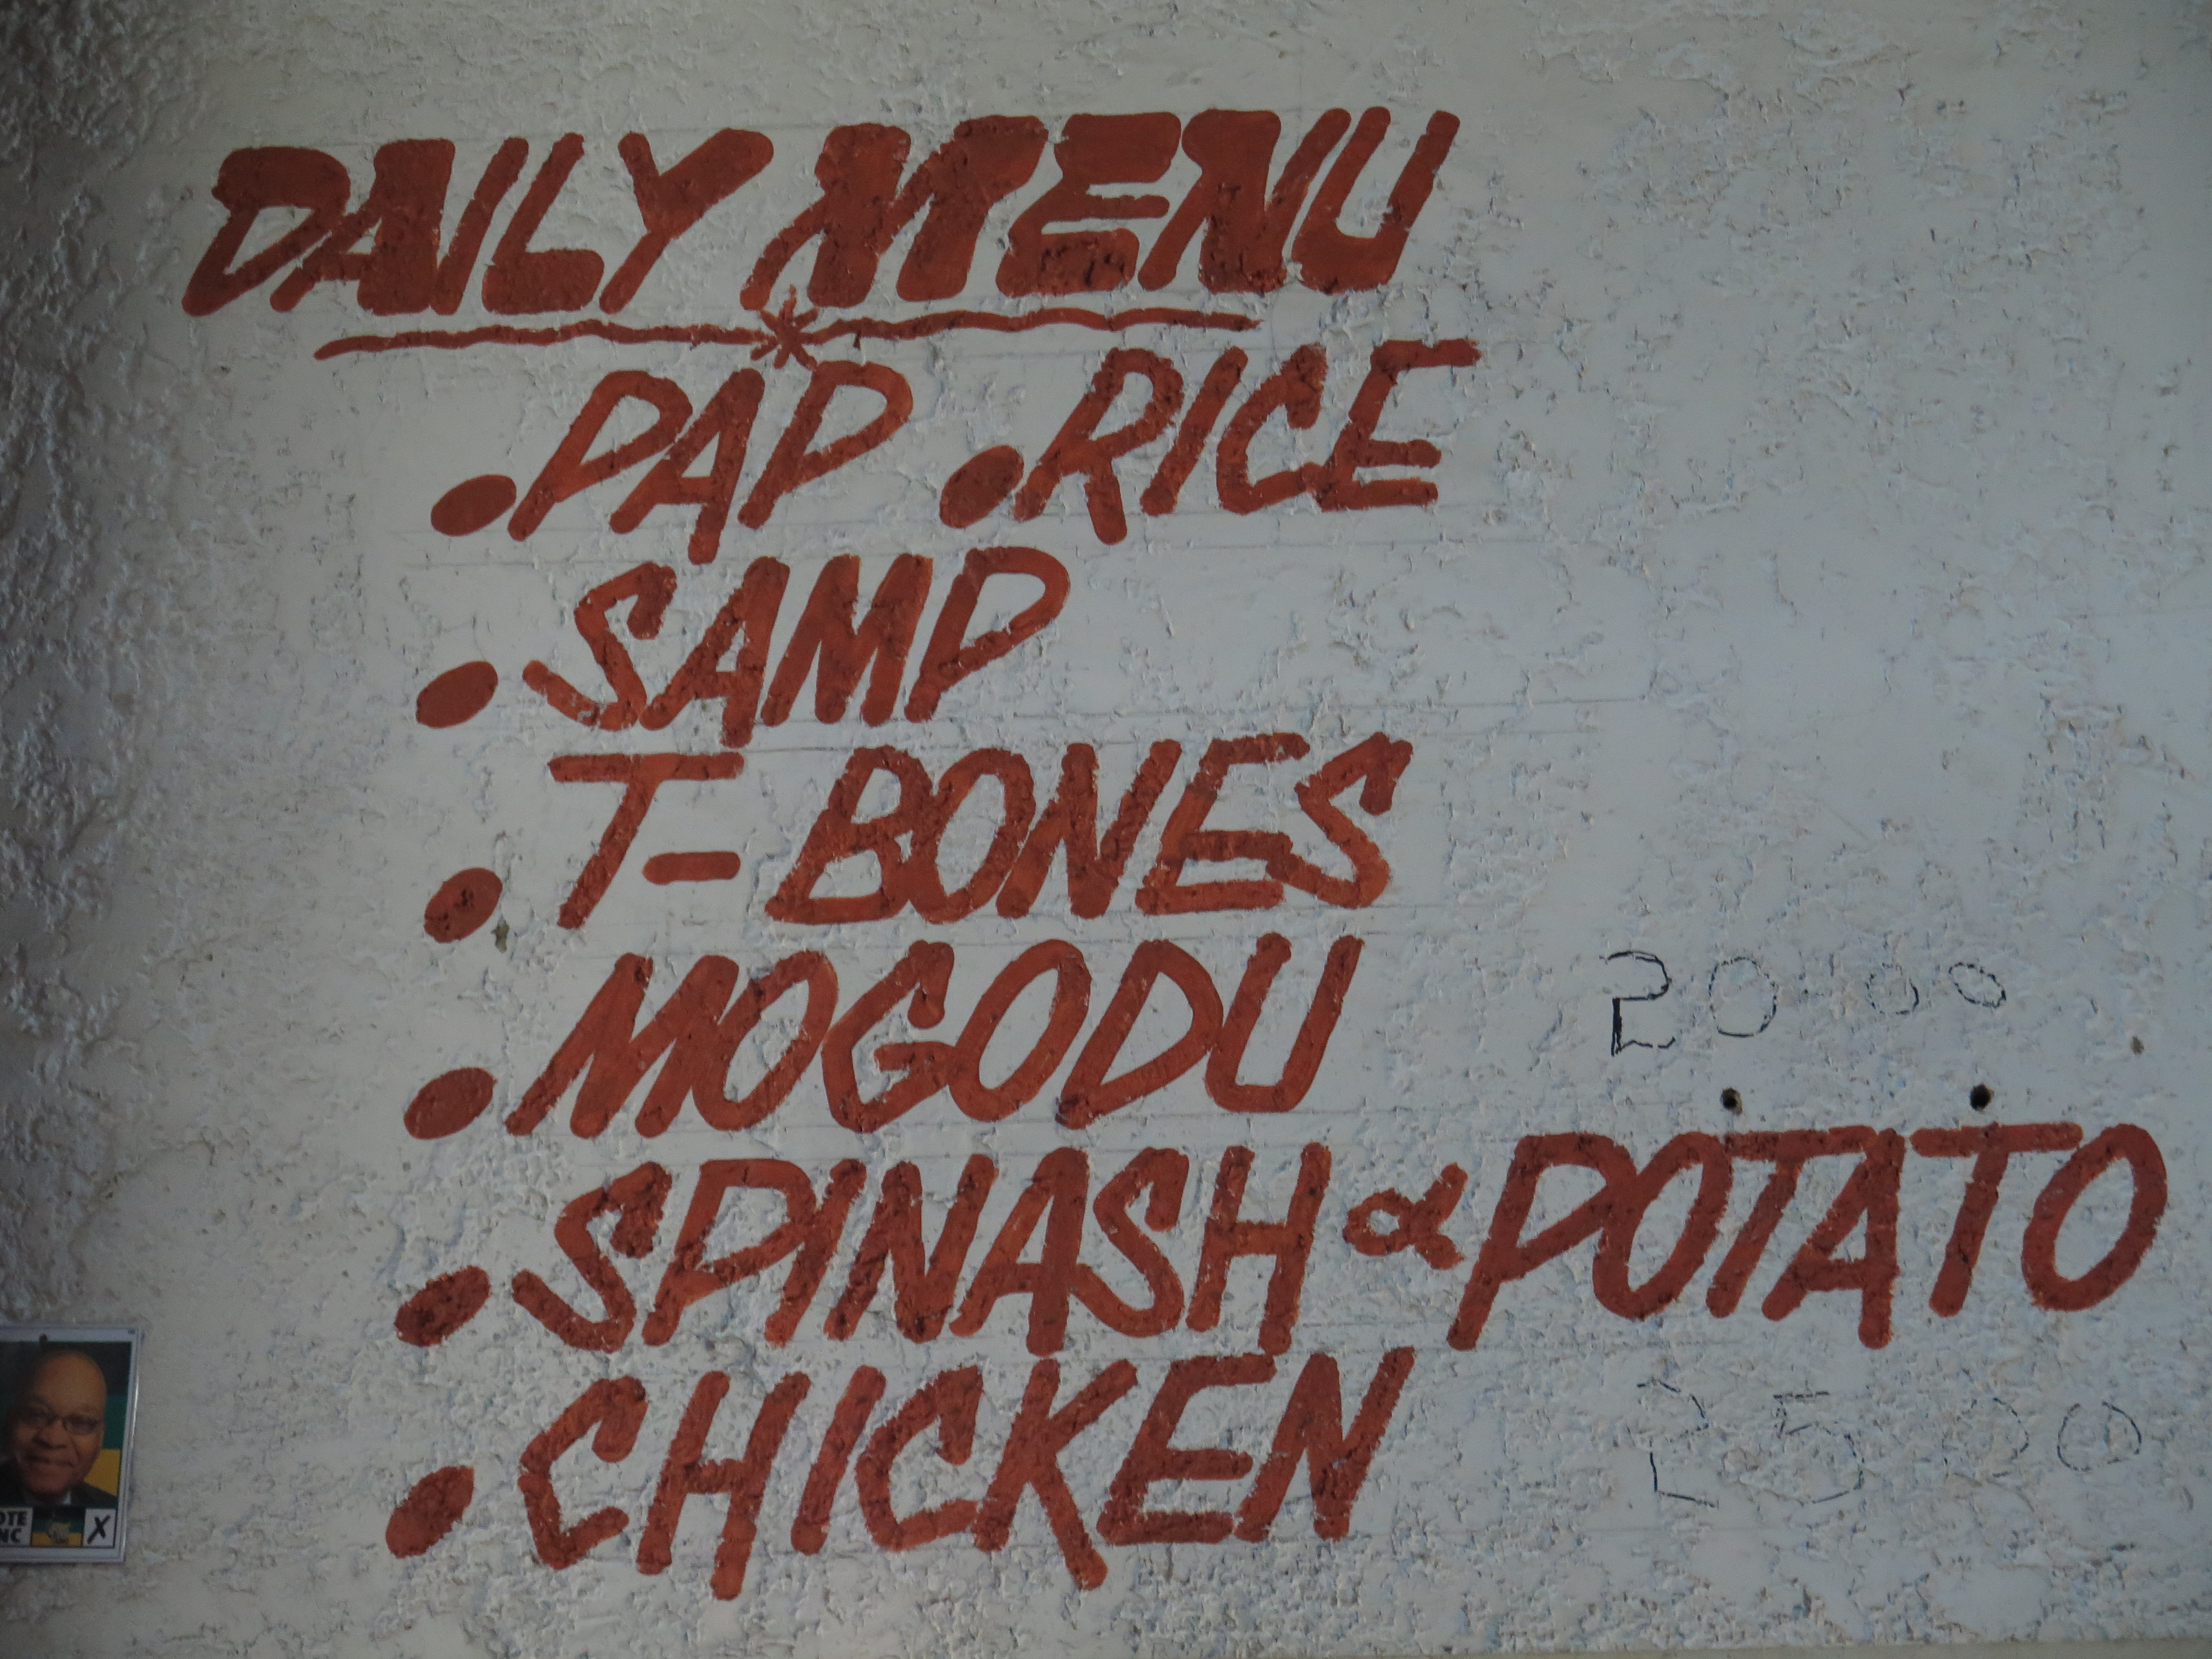 DAILY MENU
• PAP • RICE
• SAMP
• T-BONES
• MOGODU
20.00
• SPINASH & POTATO
• CHICKEN
25 00
OTE
NC X